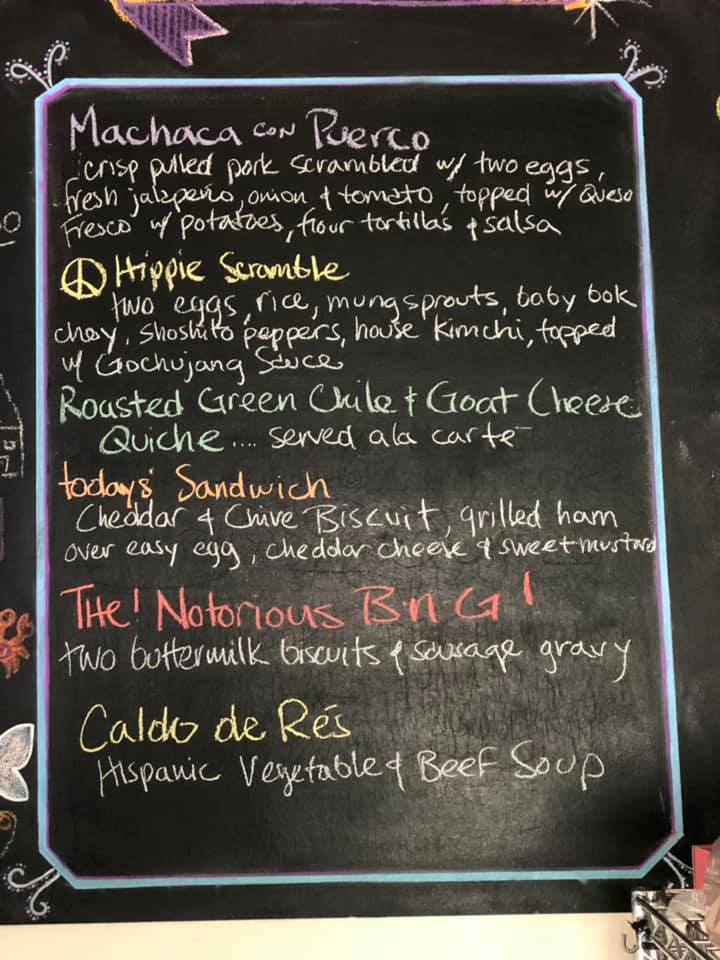 Machaca con Puerco
crisp pulled pork scrambled w/ two eggs,
fresh jalapeño, onion & tomato, topped w/ Queso
Fresco w/ potatoes, flour tortillas & salsa
Hippie Scramble
two eggs, rice, mung sprouts, baby bok
choy, shoshito peppers, house Kimchi, topped
w/ Gochujang Sauce
Roasted Green Chile & Goat Cheese
Quiche .... served a la carte
todays' Sandwich
Cheddar & Chive Biscuit, grilled ham
over easy egg, cheddar cheese & sweet mustard
THE! Notorious BnG!
two buttermilk biscuits & sausage gravy
Caldo de Rés
Hispanic Vegetable & Beef Soup